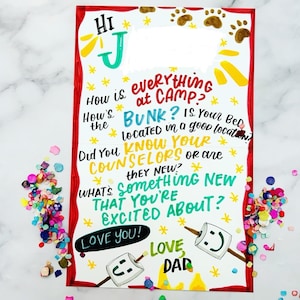 HI
J
HOW IS everything
at CAMP?
HOW'S
the BUNK? IS YOUR BED
LOCATED in a good location?
DID YOU KNOW YOUR
COUNSELORS OR are
they NEW?
WHATS Something NEW
THAT YOU'RE
EXCITED ABOUT?
LOVE YOU!
LOVE,
DAD